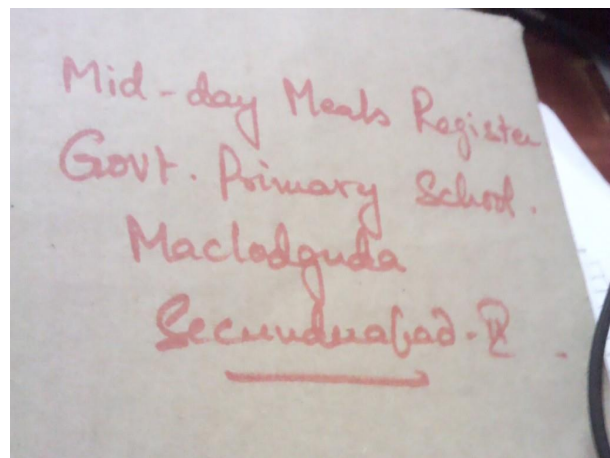 Mid-day Meals Register
Govt. Primary School.
Maclodguda
Secunderabad-